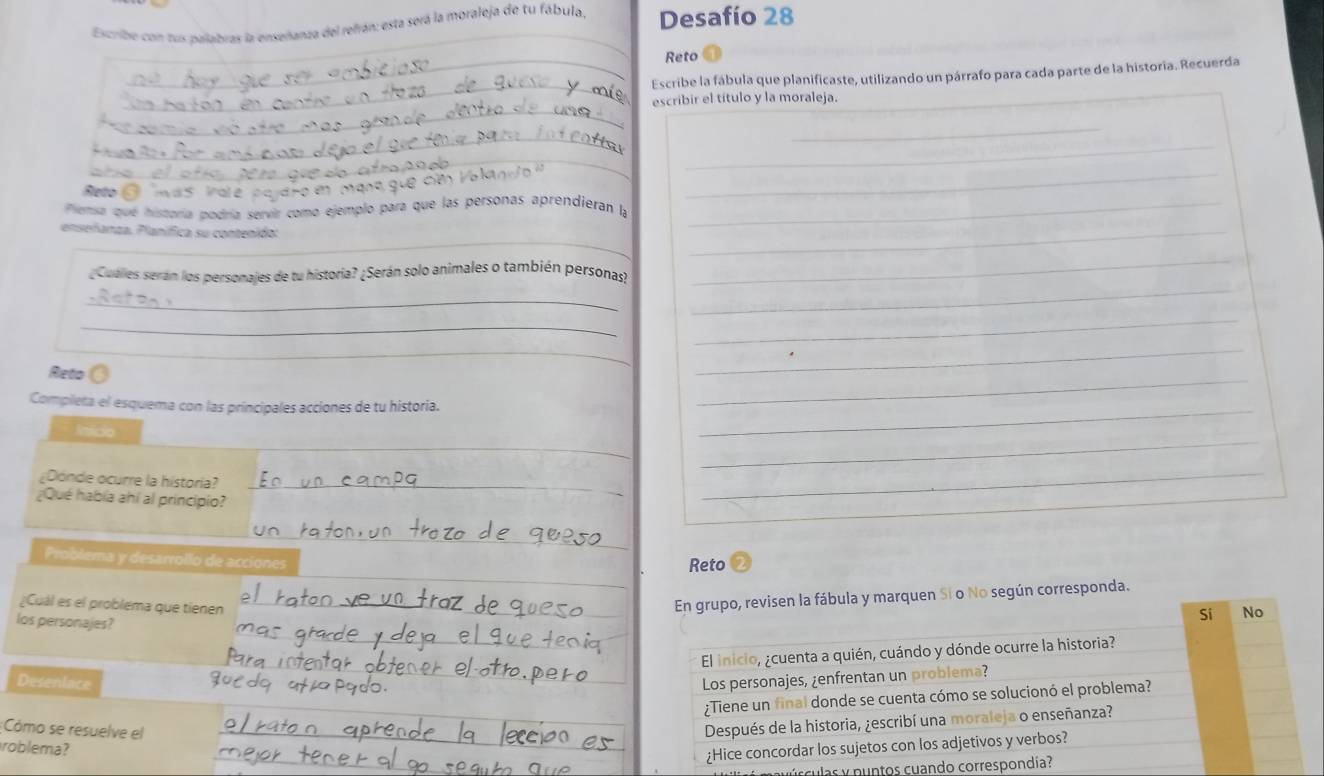 Escribe con tus palabras la enseñanza del refrán: esta será la moraleja de tu fábula.
no hay que ser ambicioso
un raton en contro un trozo de queso y mie
vio otro mas grande dentro de una
trampa. Por ambicioso dejo el que tenia para intentar
el otro, pero quedo atrapado
Reto 5 "mas vale pajaro en mano que cien volando"
Piensa qué historia podría servir como ejemplo para que las personas aprendieran la
enseñanza. Planifica su contenido:
¿Cuáles serán los personajes de tu historia? ¿Serán solo animales o también personas?
Raton.
Reto 6
Completa el esquema con las principales acciones de tu historia.
Inicio
¿Dónde ocurre la historia?
¿Qué había ahí al principio?
En un campa
un raton, un trozo de queso
Problema y desarrollo de acciones
¿Cuál es el problema que tienen
los personajes?
el raton ve un traz de queso
mas grande y deja el que tenia
Para intentar obtener el otro. pero
queda atrapado.
Desenlace
Cómo se resuelve el
roblema?
el raton aprende la leccion es
mejor tener al go seguro que
Desafío 28
Reto 1
Escribe la fábula que planificaste, utilizando un párrafo para cada parte de la historia. Recuerda
escribir el título y la moraleja.
Reto 2
En grupo, revisen la fábula y marquen Sí o No según corresponda.
Sí No
El inicio, ¿cuenta a quién, cuándo y dónde ocurre la historia?
Los personajes, ¿enfrentan un problema?
¿Tiene un final donde se cuenta cómo se solucionó el problema?
Después de la historia, ¿escribí una moraleja o enseñanza?
¿Hice concordar los sujetos con los adjetivos y verbos?
mayúsculas y puntos cuando correspondía?